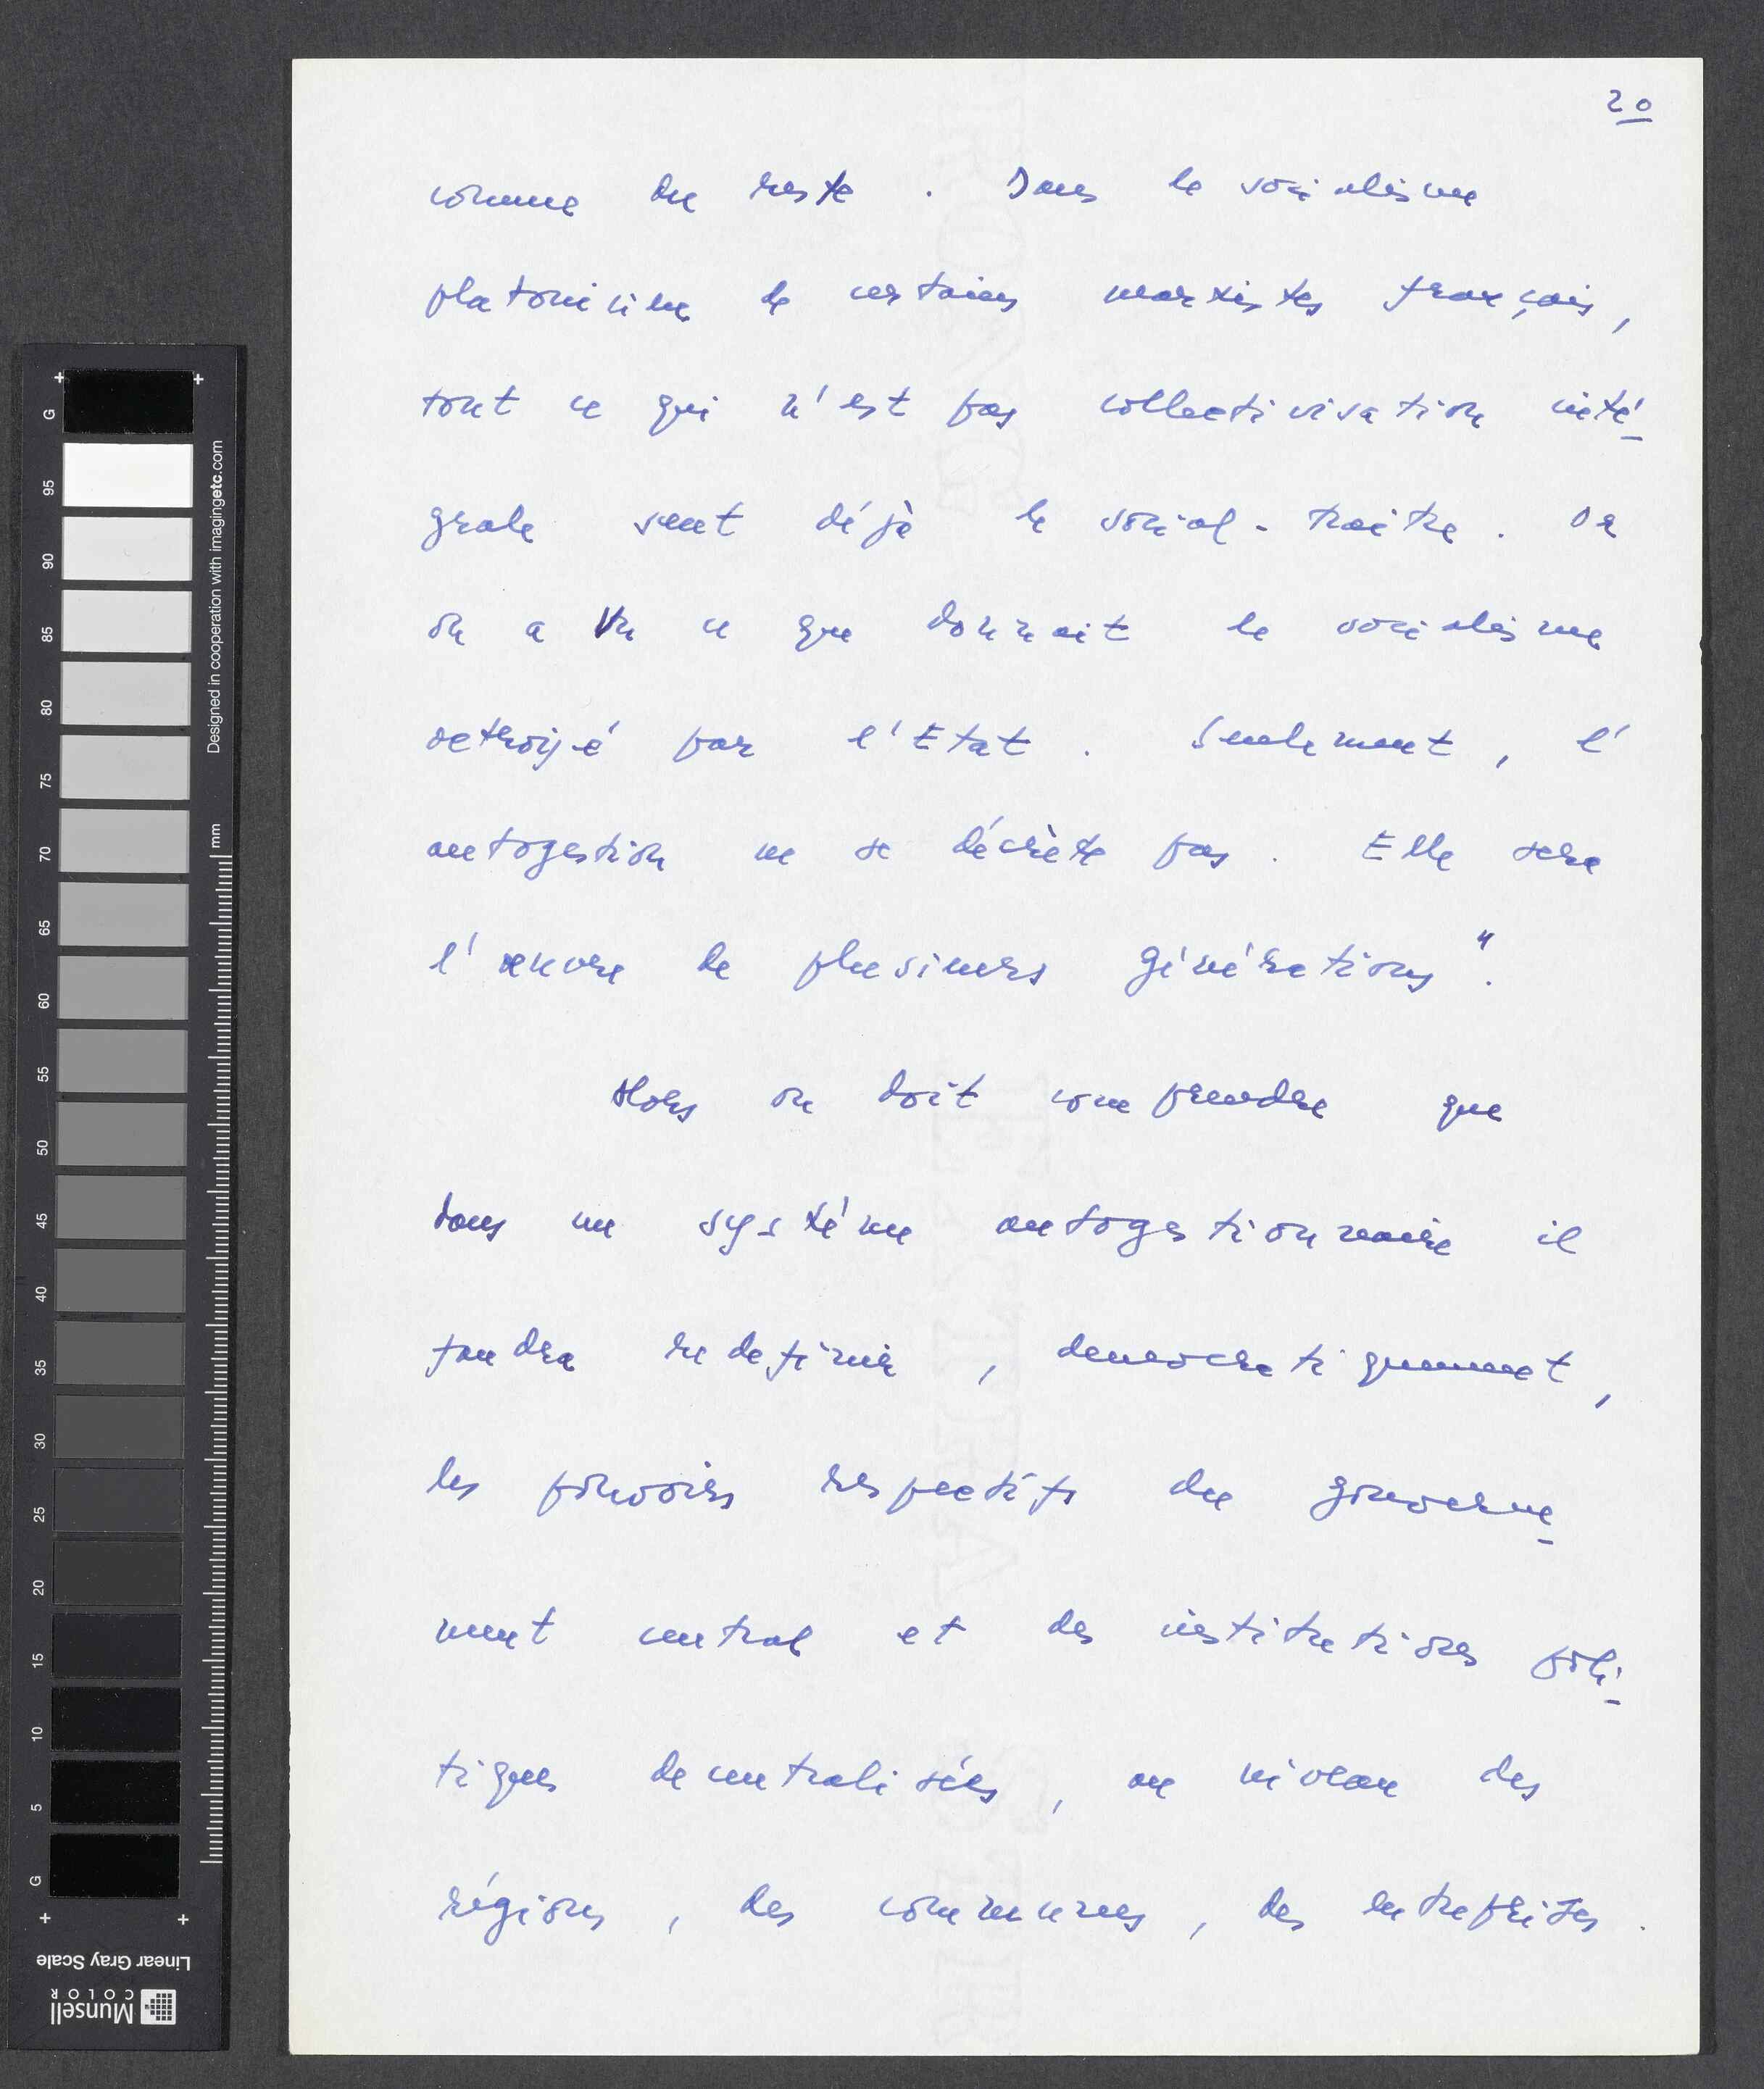 20
comme du reste. Dans le socialisme
platonicien de certains marxistes français,
tout ce qui n'est pas collectivisation inté-
grale sent déjà le social-traitre. Or
on a vu ce que donnait le socialisme
octroyé par l'Etat. Seulement, l'
autogestion ne se décrète pas. Elle sera
l'œuvre de plusieurs générations".
Alors on doit comprendre que
dans un systéme autogestionnaire il
faudra redefinir, democratiquement,
les pouvoirs respectifs du gouverne-
ment central et des institutions poli-
tiques decentralisées, au niveau des
régions, des communes, des entreprises.
G
95
90
85
80
75
70
65
60
55
50
45
40
35
30
25
20
15
10
5
G
mm
Designed in cooperation with imagingetc.com
Linear Gray Scale
Munsell
COLOR